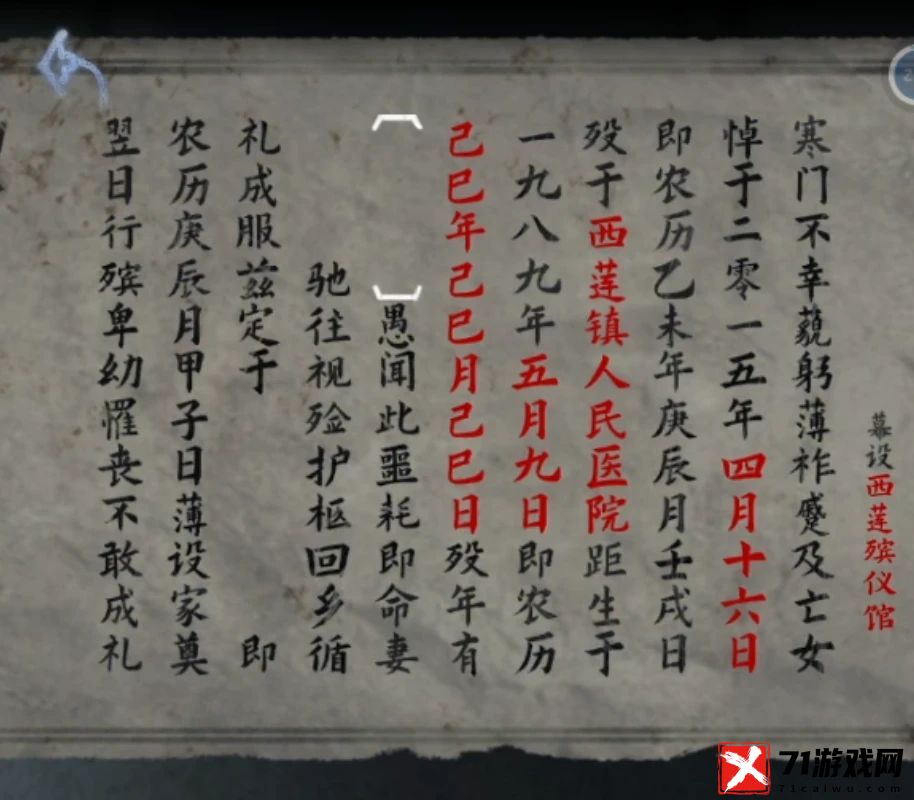 幕设西莲殡仪馆
寒门不幸藐躬薄祚蹙及亡女
悼于二零一五年四月十六日
即农历乙未年庚辰月壬戌日
殁于西莲镇人民医院距生于
一九八九年五月九日即农历
己巳年己巳月己巳日殁年有
愚闻此噩耗即命妻
驰往视殓护柩回乡循
礼成服兹定于 即
农历庚辰月甲子日薄设家奠
翌日行殡卑幼罹丧不敢成礼
71游戏网
71caiwu.com